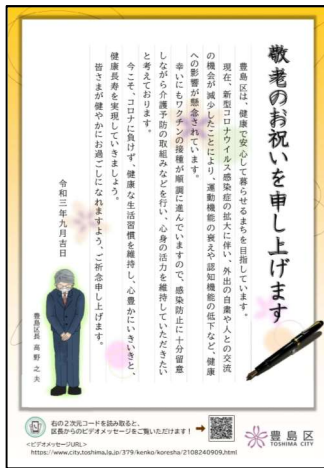 敬老のお祝いを申し上げます
豊島区は、健康で安心して暮らせるまちを目指しています。
現在、新型コロナウイルス感染症の拡大に伴い、外出の自粛や人との交流
の機会が減少したことにより、運動機能の衰えや認知機能の低下など、健康
への影響が懸念されています。
幸いにもワクチンの接種が順調に進んでいますので、感染防止に十分留意
しながら介護予防の取組みなどを行い、心身の活力を維持していただきたい
と考えております。
今こそ、コロナに負けず、健康な生活習慣を維持し、心豊かにいきいきと、
健康長寿を実現していきましょう。
皆さまが健やかにお過ごしになれますよう、ご祈念申し上げます。
令和三年九月吉日
豊島区長 高野 之夫
右の2次元コードを読み取ると、
区長からのビデオメッセージをご覧いただけます！
<ビデオメッセージURL>
https://www.city.toshima.lg.jp/379/kenko/koresha/2108240909.html
豊島区
TOSHIMA CITY